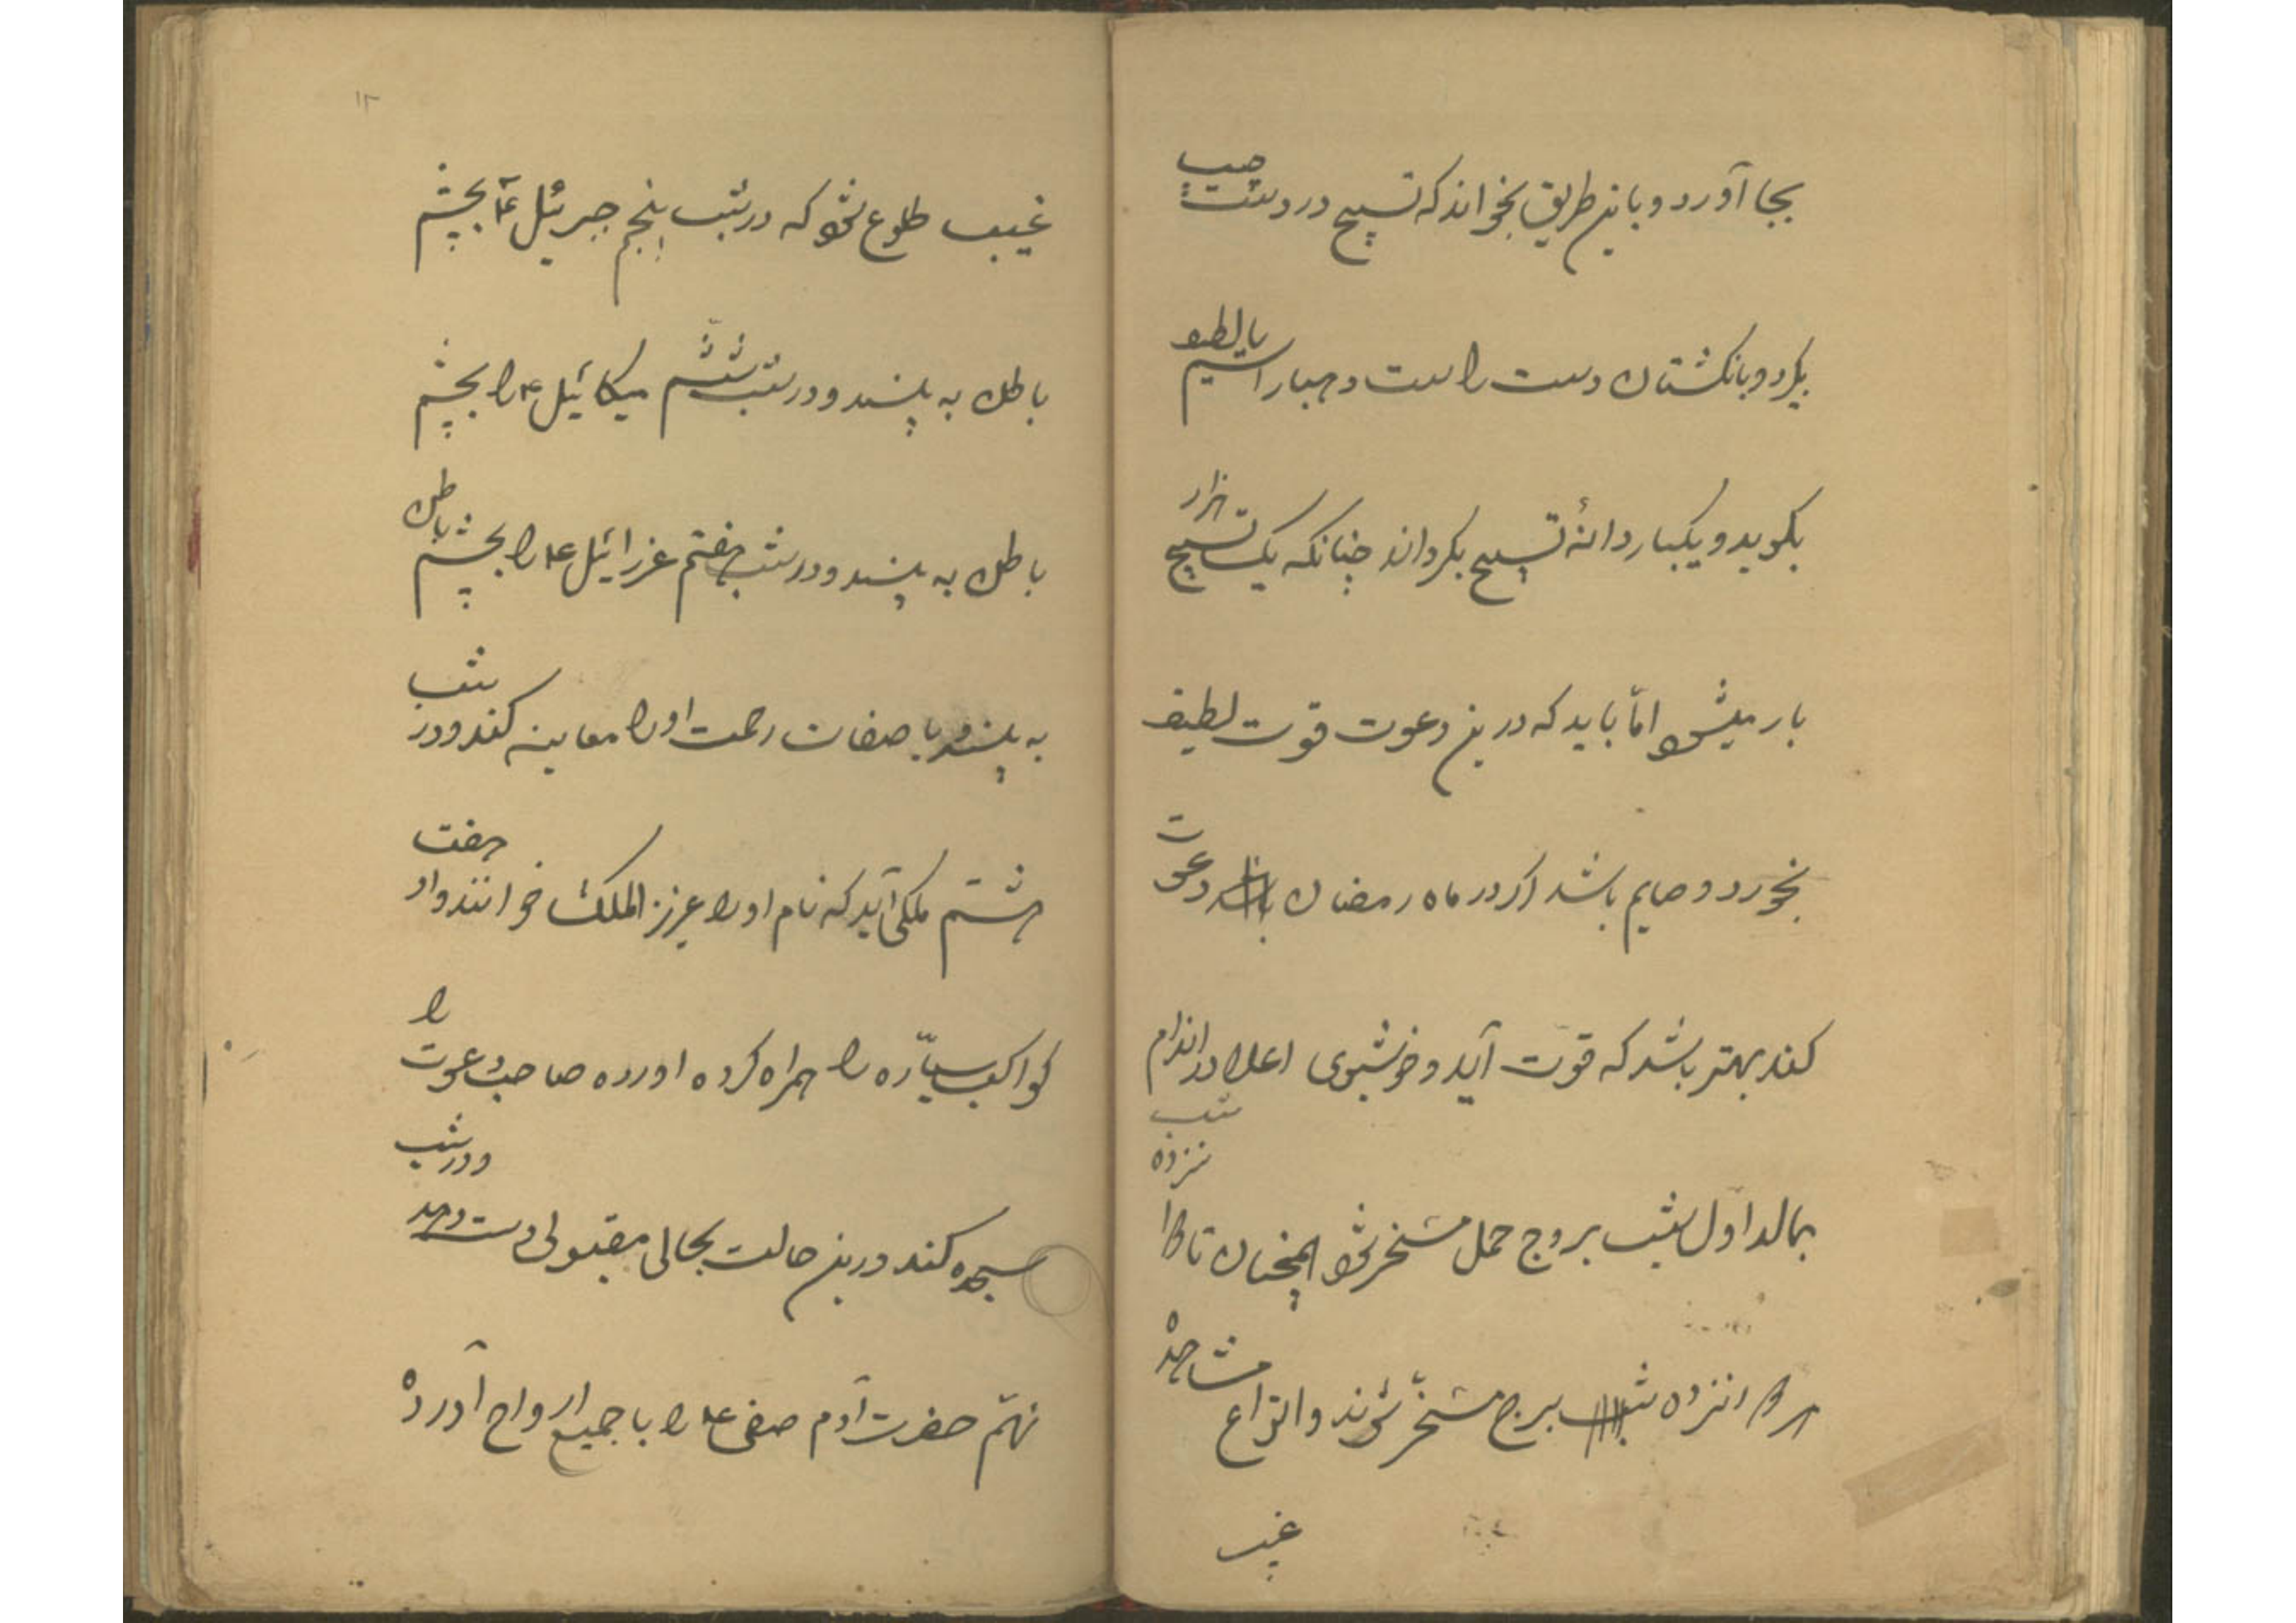 بجا آورد و باین طریق بخواند که تسبیح در دست چپ
بگیرد و بانگشتان دست راست و چهار اسیم یا لطیف
بگوید و یکبار دانهٔ تسبیح بگرداند چنانکه یک تسبیح هزار
بار میشود امّا باید که درین دعوت قوت لطیف
بخورد و صایم باشد اگر در ماه رمضان دعوت
کند بهتر باشد که قوّت آید و خوشبوی اعلا در اندام
بمالد اوّل شب بروج حمل مسخر شود همچنان تا
شب برج مسخّر شوند و انواع مشاهده
غیب
۱۲
غیب طلوع شود که در شب پنجم جبرئیل ۴ بچشم
باطن به بیند و در شب ششم میکائیل ۴ را بچشم
باطن به بیند و در شب هفتم عزرائیل ۴ را بچشم باطن
به بیند و با صفات رحمت او را معاینه کند و در شب
هشتم ملکی آید که نام او را عزیز الملک خوانند و او هفت
کواکب سیّاره را همراه کرده اورده صاحب دعوت را
سجده کند درین حالت بحالی مقبولی دست دهد و در شب
نهم حضرت آدم صفی ۴ را با جمیع ارواح آورده